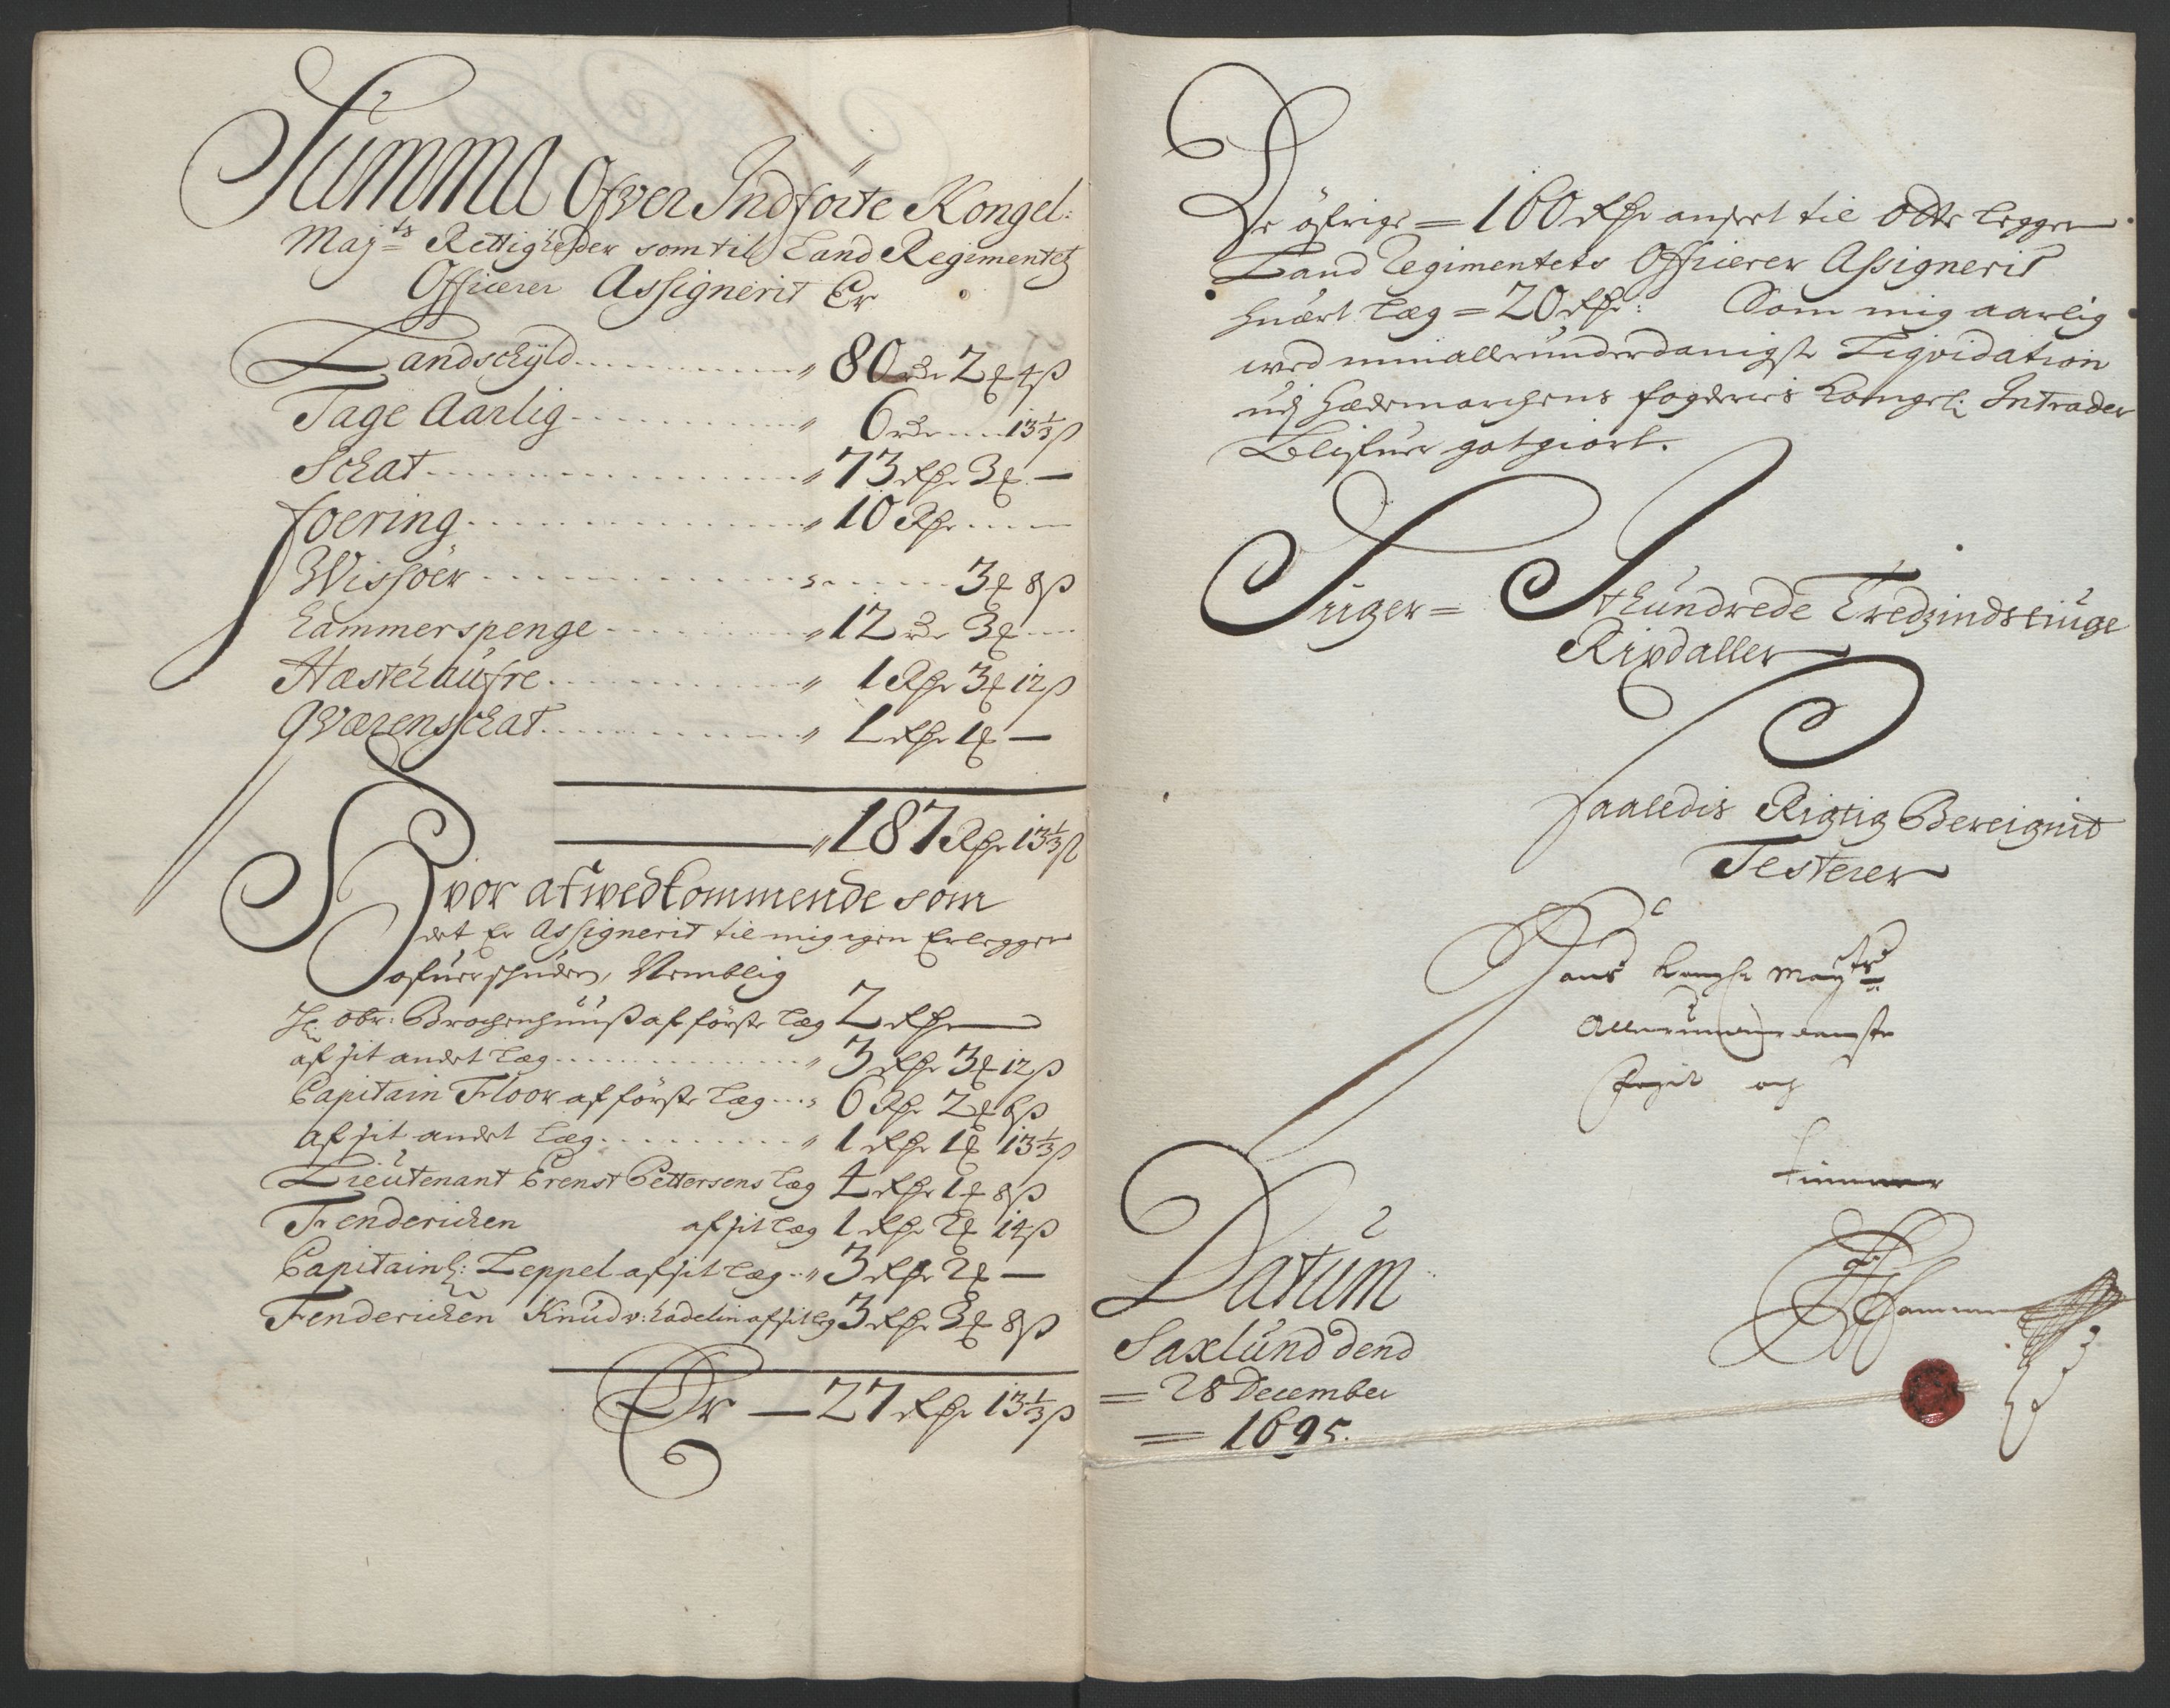 Summa Ofver Indförte Kongel:
Mayts Rettigheder som til Land Regimentetz
Officerer Assignerit Er
Landschyld " 80 Rdr 2 ℔ 4 ß
Tage Aarlig " 6 Rdr 13⅓ ß
Schat " 73 Rdr 3 ℔ —
foering " 10 Rdr
Wissöer 3 ℔ 8 ß
Kammerspenge " 12 Rdr 3 ℔
Hæstehaufre " 1 Rdr 3 ℔ 12 ß
Qværenschat " 1 Rdr 1 ℔ —
" 187 Rdr 13⅓ ß
Hvor af wedkommende som
det Er Assignerit til mig igen Erlegger
ofuerschuden, Nemblig
Hr. Obr: Brochenhuuß af förste Læg 2 Rdr
af sit andet Læg " 3 Rdr 3 ℔ 12 ß
Capitain Floor af förste Læg 6 Rdr 2 ℔ 6 ß
Af sit andet Læg " 1 Rdr 1 ℔ 13⅓ ß
Lieutenant Erenst Pettersens Læg 4 Rdr 1 ℔ 8 ß
Fenderichen af sit Læg 1 Rdr 2 ℔ 14 ß
Capitain H: Zeppel af sit Læg " 3 Rdr 2 ℔ —
Fenderichen Knud v: Hadelin af sit Læg 3 Rdr 3 ℔ 8 ß
Er — 27 Rdr 13⅓ ß
De öfrige = 160 Rdr anført til Otte Legger
Land Regimentets Officerer Assignerit
huært Læg = 20 Rdr: Som mig aarlig
wed min allerunderdanigste Liqvidation
udj Hædemarchens fogderies Kongel: Intrader
Blifuer gotgiort.
Siuger = Ithundrede Tredzindstiuge
Rixdaller
saaledis Rigtig Bereignit
Testerer
Hans Kongle Maytts
Allerunderdanigste
Fogit og
tienner
Datum
Saxlund dend
= 28 December
= 1695.